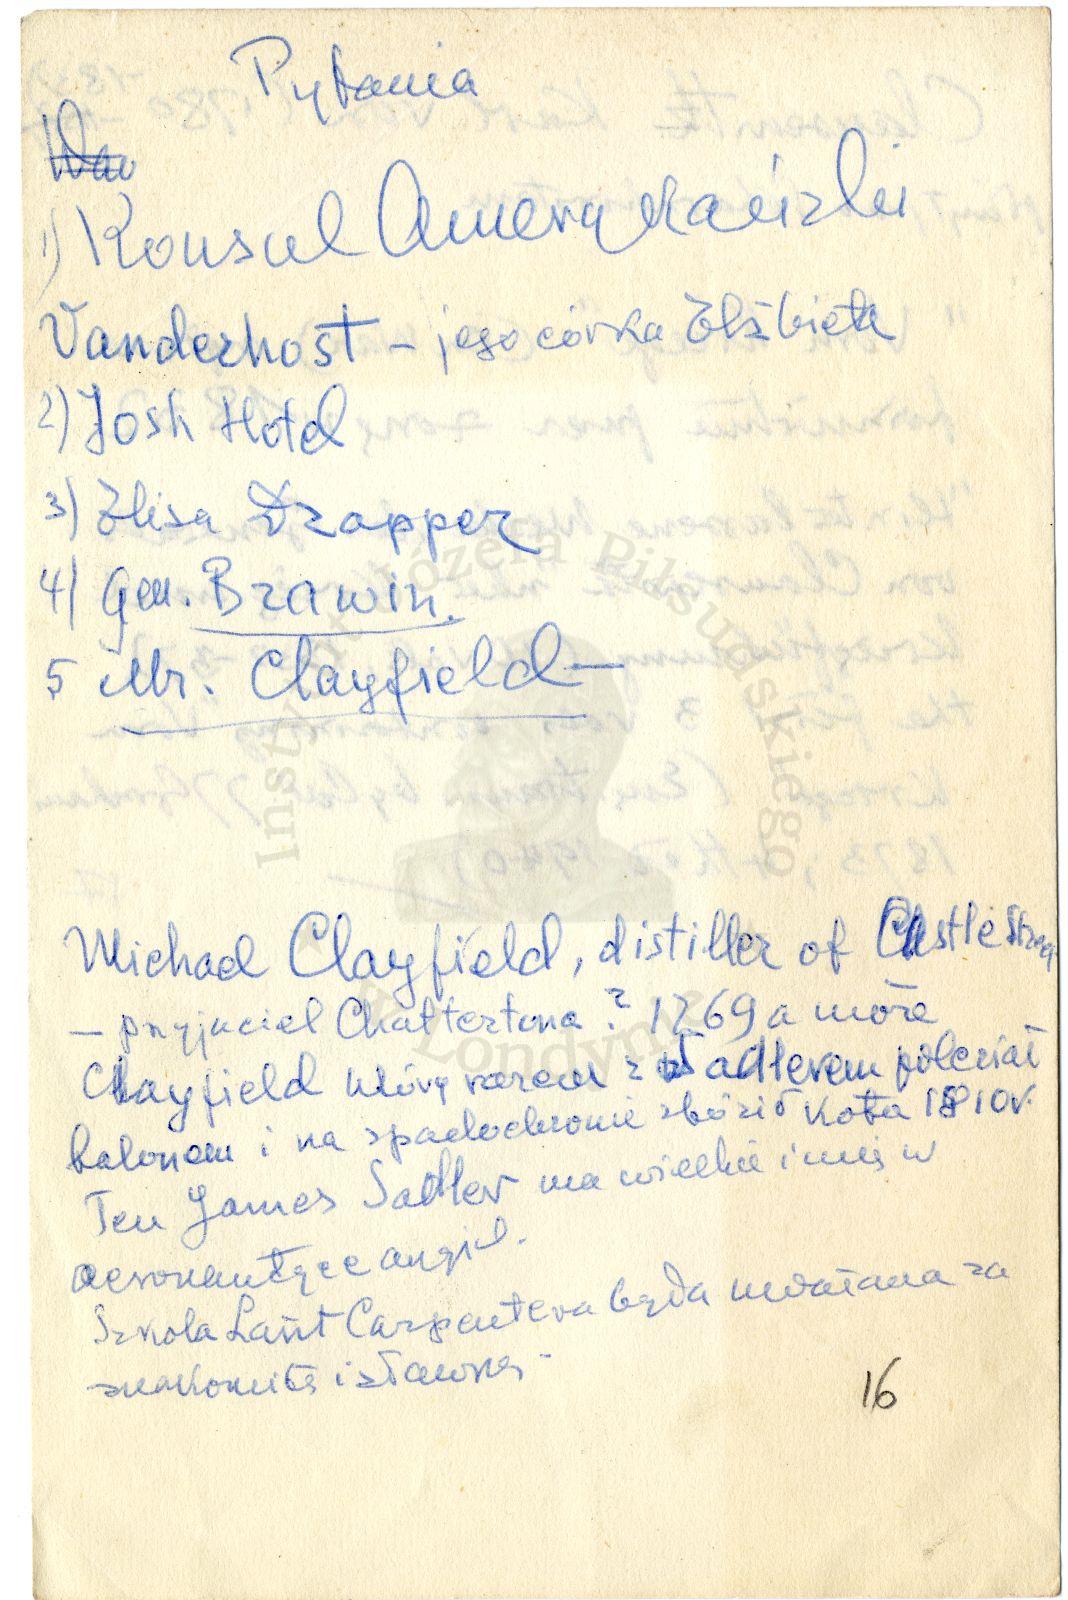 Pytania
1) Konsul Amerykański
Vanderhost – jego córka Elżbieta
2) Josh Hotel
3) Elisa Drapper
4) Gen. Brawin.
5 Mr. Clayfield –
Michael Clayfield, distiller of Castle
– przyjaciel Chattertona ? 1769 a może
Clayfield który razem z Sadlerem poleciał
balonem i na spadochronie zbózić kota 1810 r.
Ten James Sadler ma wielkie imię w
aeronautyce angiel.
Szkoła Lant Carpentera była uważana za
znakomitą i sławną -
16
Instytut Józefa Piłsudskiego
w Londynie